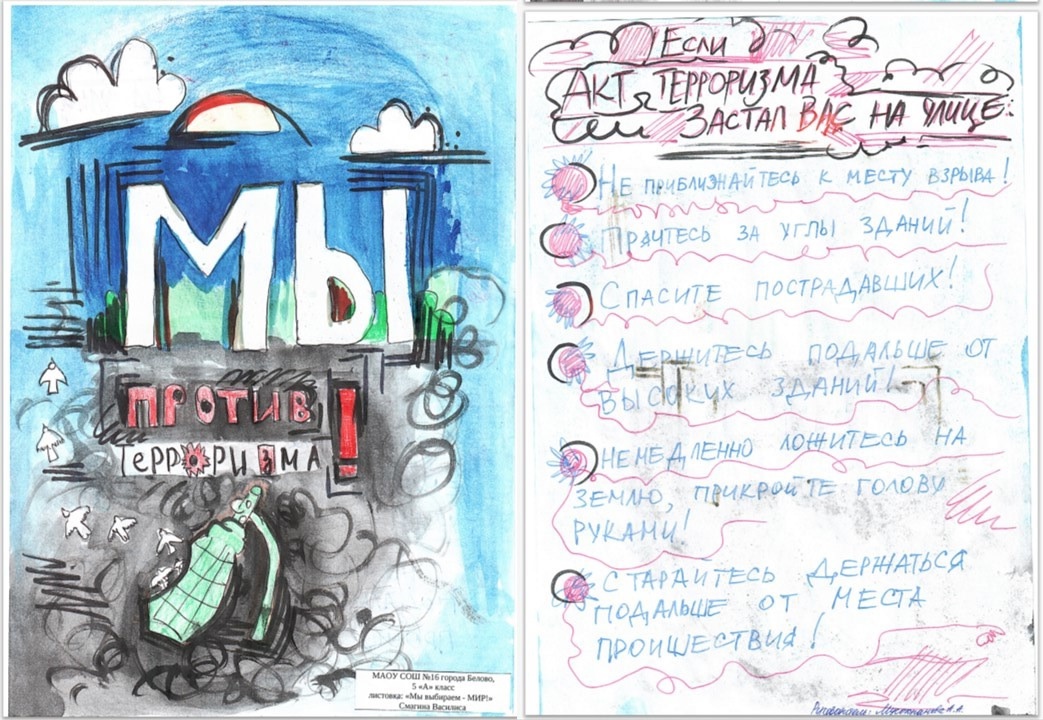 МЫ
ПРОТИВ!
ТЕРРОРИЗМА
МАОУ СОШ №16 города Белово,
5 «А» класс
листовка: «Мы выбираем - МИР!»
Смагина Василиса
ЕСЛИ
АКТ ТЕРРОРИЗМА
ЗАСТАЛ ВАС НА УЛИЦЕ:
НЕ ПРИБЛИЖАЙТЕСЬ К МЕСТУ ВЗРЫВА!
ПРЯЧТЕСЬ ЗА УГЛЫ ЗДАНИЙ!
СПАСИТЕ ПОСТРАДАВШИХ!
ДЕРЖИТЕСЬ ПОДАЛЬШЕ ОТ
ВЫСОКИХ ЗДАНИЙ!
НЕМЕДЛЕННО ЛОЖИТЕСЬ НА
ЗЕМЛЮ, ПРИКРОЙТЕ ГОЛОВУ
РУКАМИ!
СТАРАЙТЕСЬ ДЕРЖАТЬСЯ
ПОДАЛЬШЕ ОТ МЕСТА
ПРОИШЕСТВИЯ!
Руководитель: